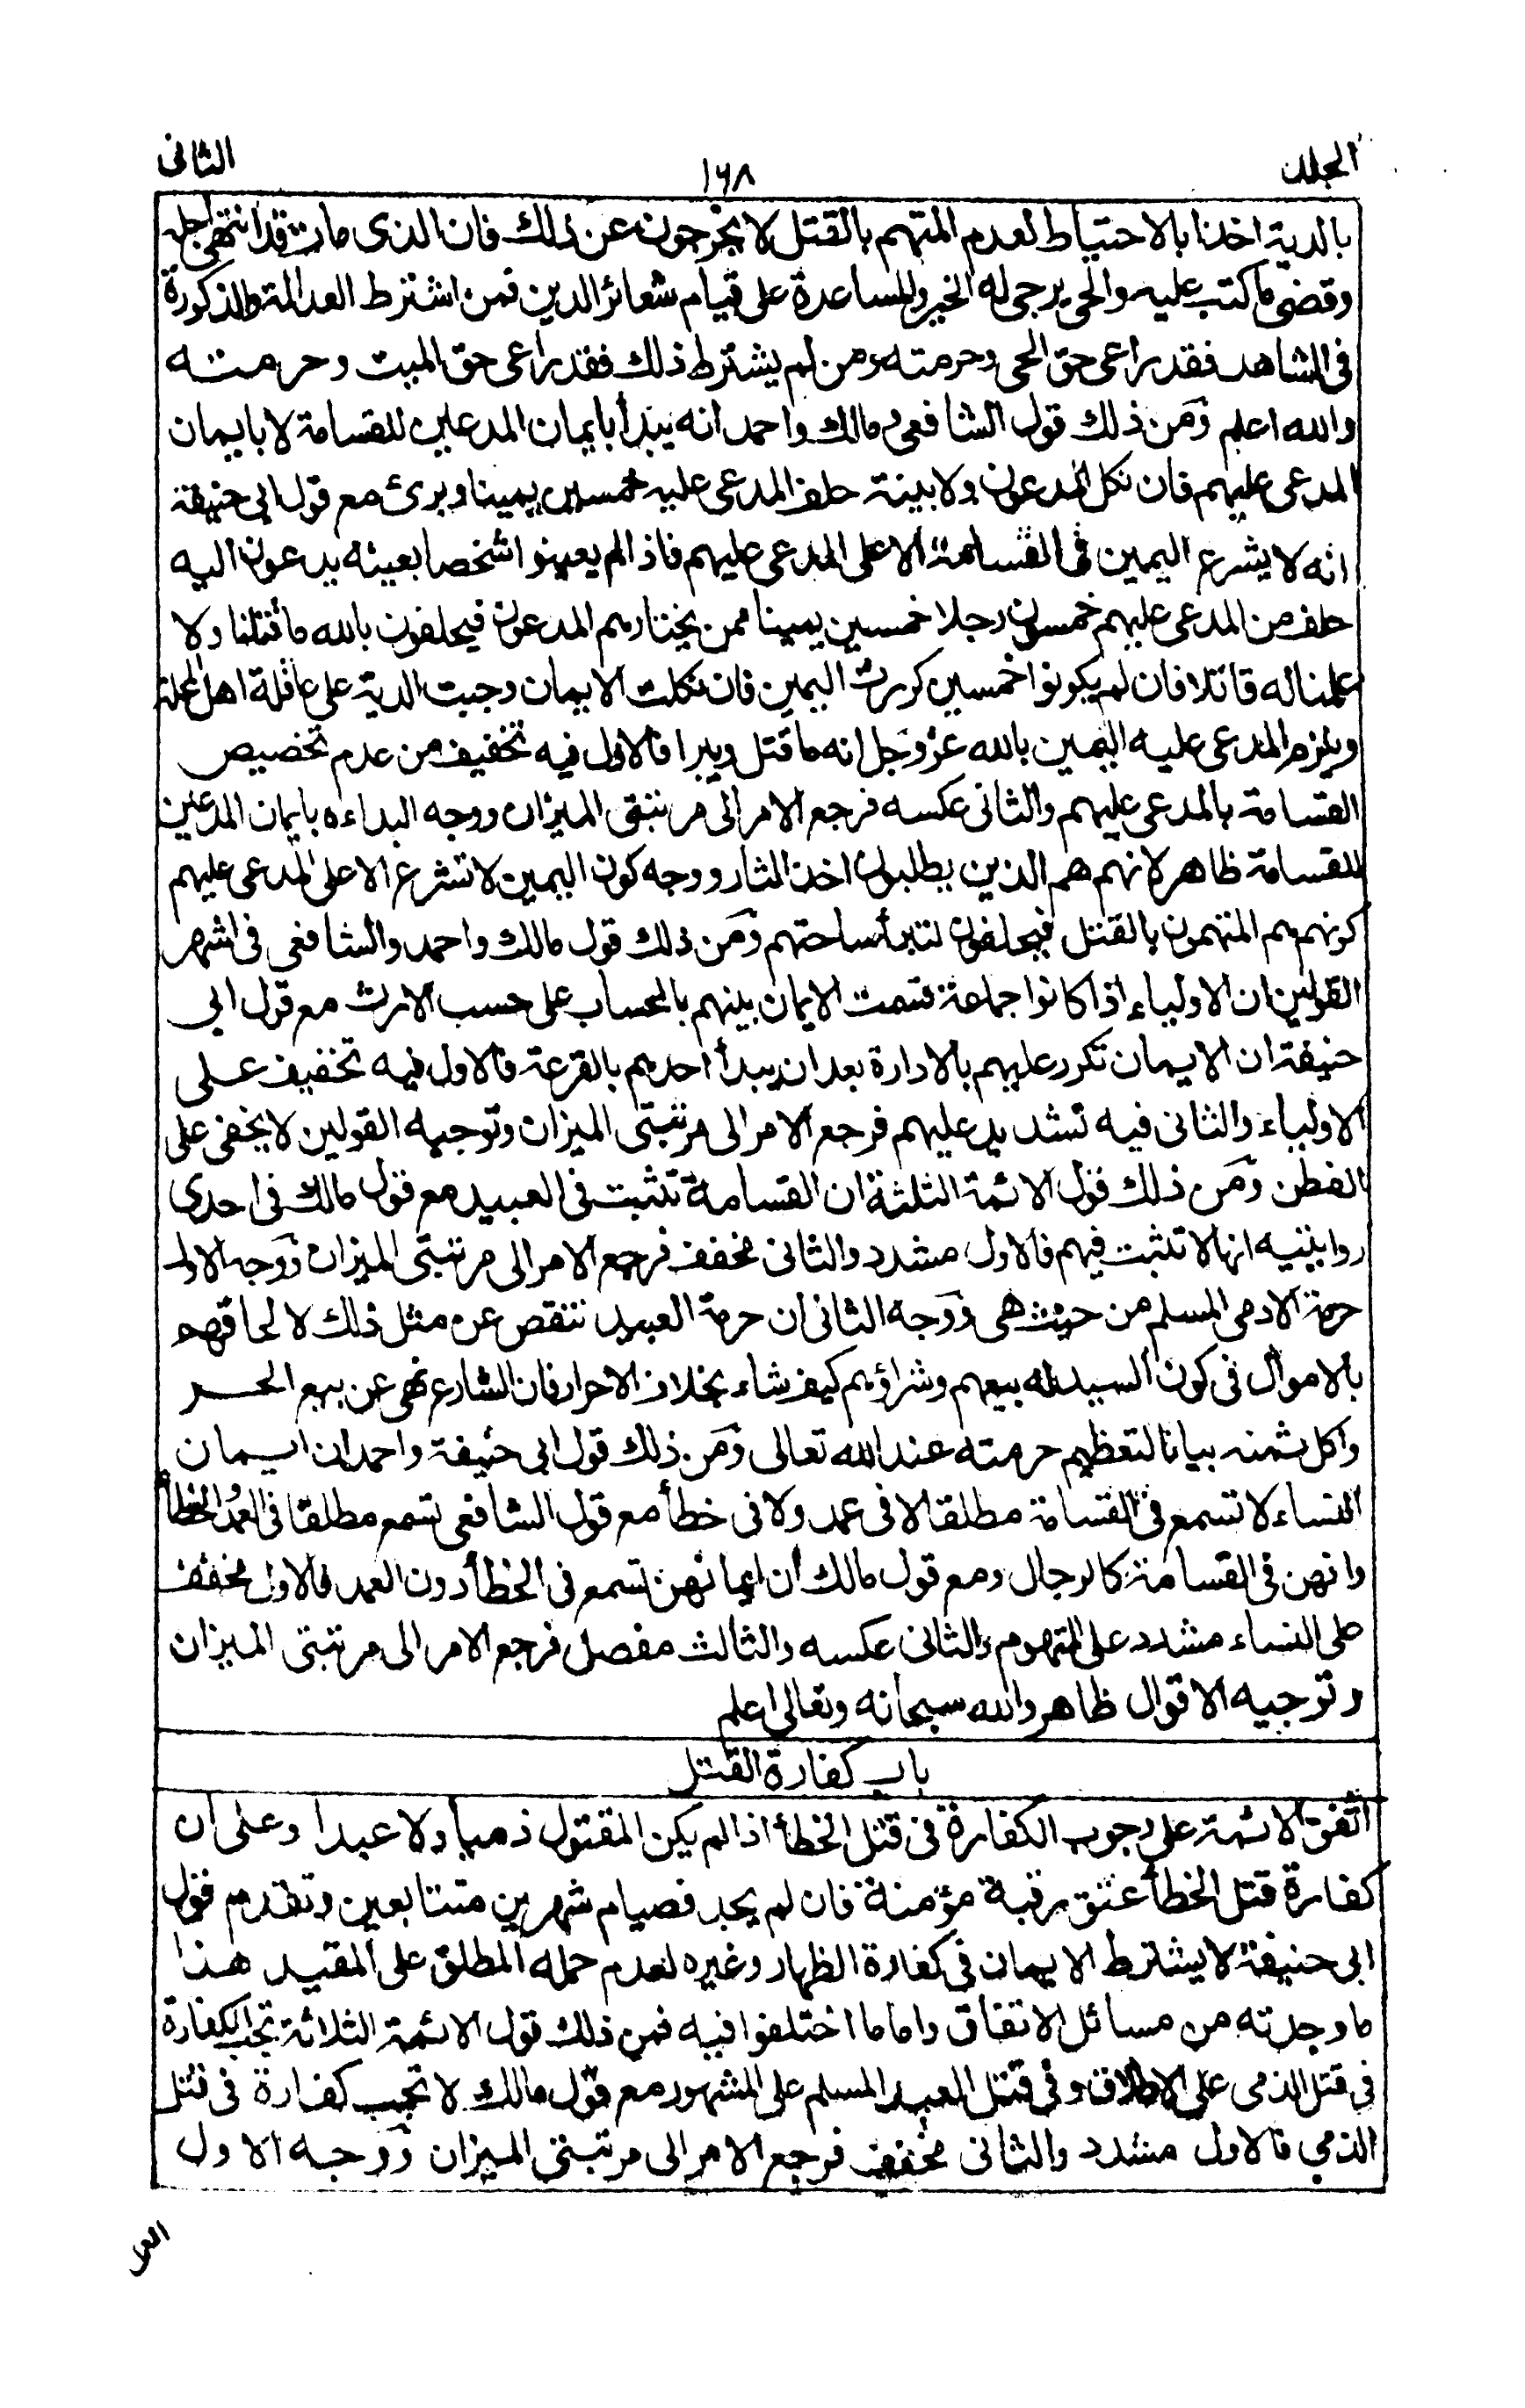 الجلد ١٦٨ الثانى
بالدية اخذا بالاحتياط لعدم المتهم بالقتل لا يخرجون عن ذلك فان الذى مات قد انتهى اجله
وقضى ما كتب عليه والحى يرجى له الخير والمساعدة على قيام شعائر الدين فمن اشترط العدالة والذكورة
فى الشاهد فقد راعى حق الحى وحرمته ومن لم يشترط ذلك فقد راعى حق الميت وحرمته
والله اعلم ومن ذلك قول الشافعى ومالك واحمد انه يبدأ بايمان المدعين للقسامة لا بايمان
المدعى عليهم فان نكل المدعون ولا بينة حلف المدعى عليه خمسين يمينا وبرئ مع قول ابى حنيفة
انه لا يشرع اليمين فى القسامة الا على المدعى عليهم فاذا لم يعينوا شخصا بعينه يدعون اليه
حلف من المدعى عليهم خمسون رجلا خمسين يمينا ممن يختارهم المدعون فيحلفون بالله ما قتلنا ولا
علمنا له قاتلا فان لم يكونوا خمسين كررت اليمين فان نكلت الايمان وجبت الدية على عاقلة اهل المحلة
ويلزم المدعى عليه اليمين بالله عز وجل انه ما قتل ويبرا فالاول فيه تخفيف من عدم تخصيص
القسامة بالمدعى عليهم والثانى عكسه فرجع الامر الى مرتبتى الميزان ووجه البداءه بايمان المدعين
للقسامة ظاهر لانهم هم الذين يطلبون اخذ الثار ووجه كون اليمين لا تشرع الا على المدعى عليهم
كونهم هم المتهمون بالقتل فيحلفون لتبرأ ساحتهم ومن ذلك قول مالك واحمد والشافعى فى اشهر
القولين ان الاولياء اذا كانوا جماعة قسمت الايمان بينهم بالحساب على حسب الارث مع قول ابى
حنيفة ان الايمان تكرر عليهم بالادارة بعد ان يبدأ احدهم بالقرعة فالاول فيه تخفيف على
الاولياء والثانى فيه تشديد عليهم فرجع الامر الى مرتبتى الميزان وتوجيه القولين لا يخفى على
الفطن ومن ذلك قول الائمة الثلثة ان القسامة تثبت فى العبيد مع قول مالك فى احدى
روايتيه انها لا تثبت فيهم فالاول مشدد والثانى مخفف فرجع الامر الى مرتبتى الميزان ووجه الاول
حرمة الادمى المسلم من حيث هى ووجه الثانى ان حرمة العبيد تنقص عن مثل ذلك لالحاقهم
بالاموال فى كون السيد له بيعهم وشراؤهم كيف شاء بخلاف الاحرار فان الشارع نهى عن بيع الحر
واكل ثمنه بيانا لتعظيم حرمته عند الله تعالى ومن ذلك قول ابى حنيفة واحمد ان ايمان
النساء لا تسمع فى القسامة مطلقا لا فى عمد ولا فى خطأ مع قول الشافعى تسمع مطلقا فى العمد والخطأ
وانهن فى القسامة كالرجال ومع قول مالك ان ايمانهن تسمع فى الخطأ دون العمد فالاول مخفف
على النساء مشدد على المتهوم والثانى عكسه والثالث مفصل فرجع الامر الى مرتبتى الميزان
وتوجيه الاقوال ظاهر والله سبحانه وتعالى اعلم
باب كفارة القتل
اتفق الائمة على وجوب الكفارة فى قتل الخطأ اذا لم يكن المقتول ذميا ولا عبدا وعلى ان
كفارة قتل الخطأ عتق رقبة مؤمنة فان لم يجد فصيام شهرين متتابعين وتقدم قول
ابى حنيفة لا يشترط الايمان فى كفارة الظهار وغيره لعدم حمله المطلق على المقيد هذا
ما وجدته من مسائل الاتفاق واما ما اختلفوا فيه فمن ذلك قول الائمة الثلاثة تجب الكفارة
فى قتل الذمى على الاطلاق وفى قتل العبد المسلم على المشهور مع قول مالك لا تجب كفارة فى قتل
الذمي فالاول مشدد والثانى مخفف فرجع الامر الى مرتبتى الميزان ووجه الاول